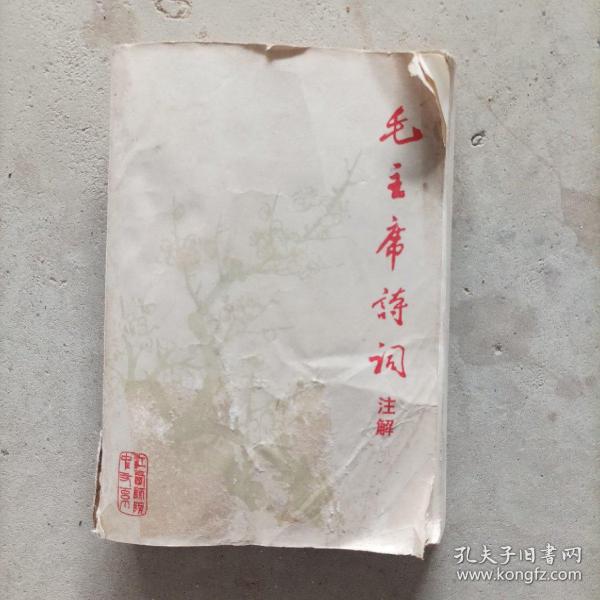 毛主席詩词
注解
中文系
孔夫子旧书网
www.kongfz.com